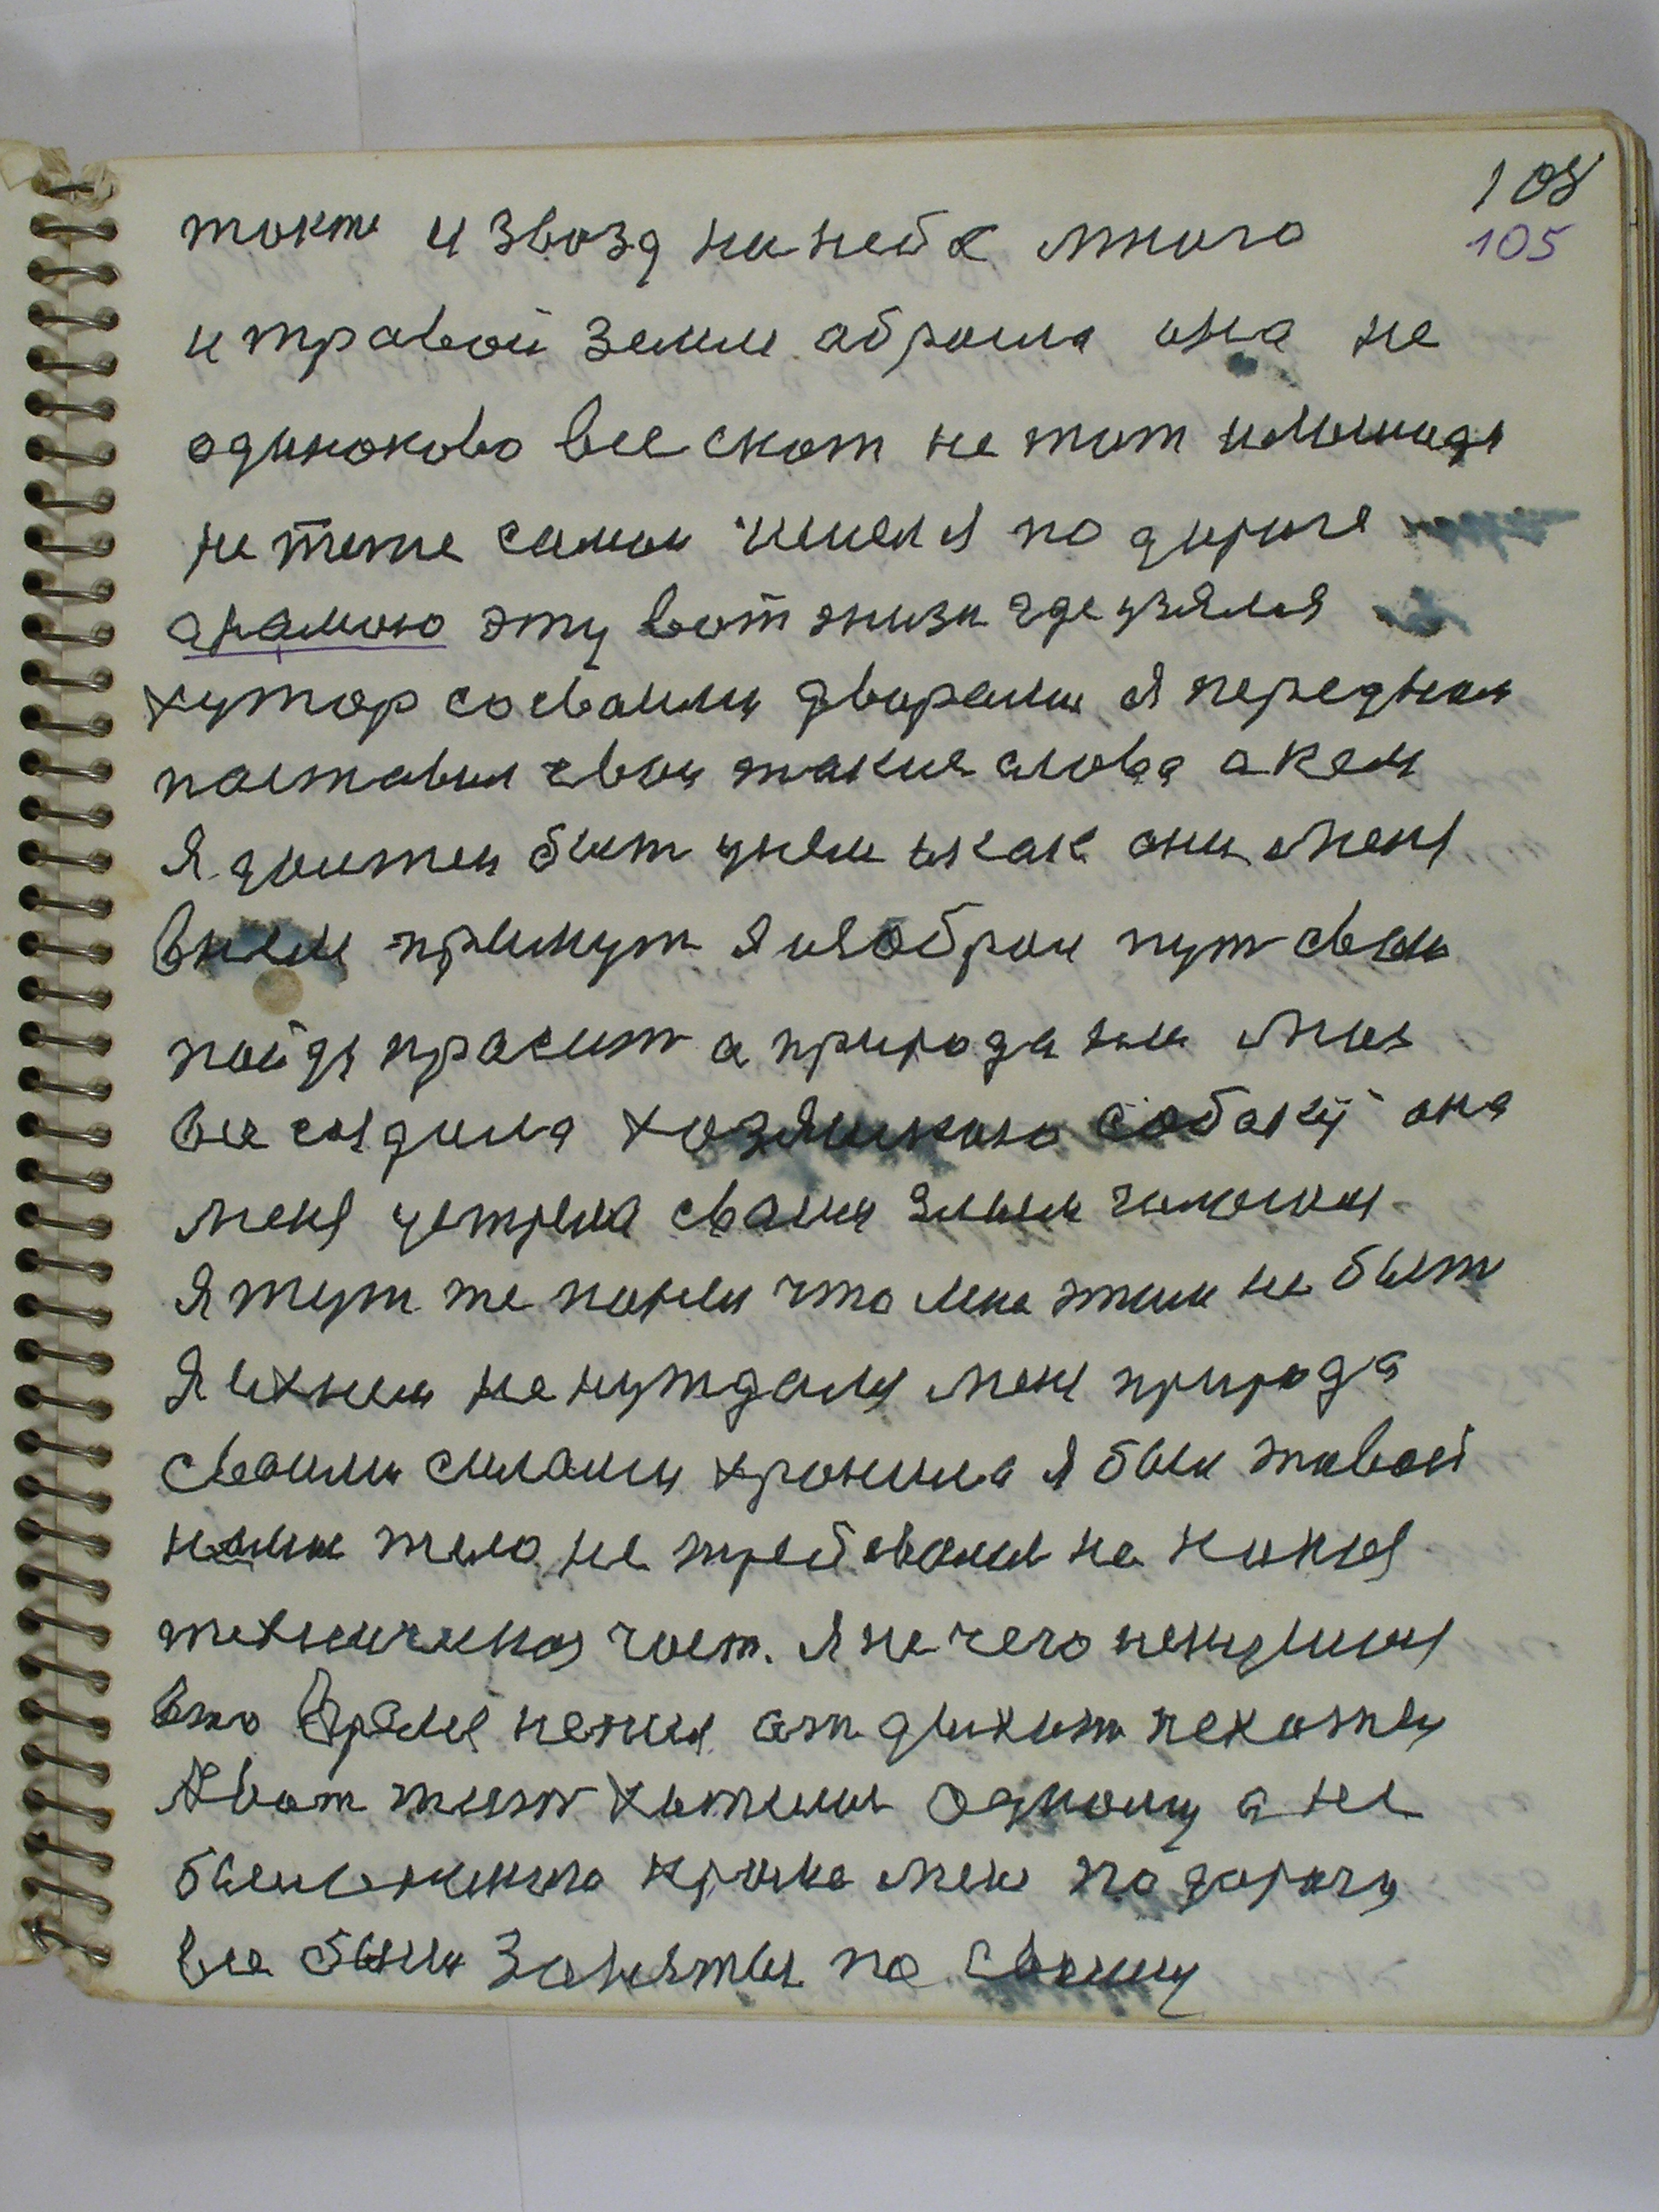 108
105
токже и звозд на небе много
и травой земли аброила она не
одиноково все скот не тот и лошидя
не теже самыи шел я по дороге
а думою эту вот жизн где узялся
хутор сосваими дворами я перед ним
поставил свои такие слова а кем
я должен быт у них и как они меня
в них примут я избрал пут свой
пойдя прасит а природа там мне
все создала хозяискою собаку она
меня устрела сваим злым галосом
я тут же понял что мне там не быт
я их ним не нуждался меня природа
сваими силами хронила я был живой
тело не требовало на никия
техническая част. я не чего не
в то время не от дыхат не
вот жит хотелос одному а не
крика мене подорогу
все были заняты по своему